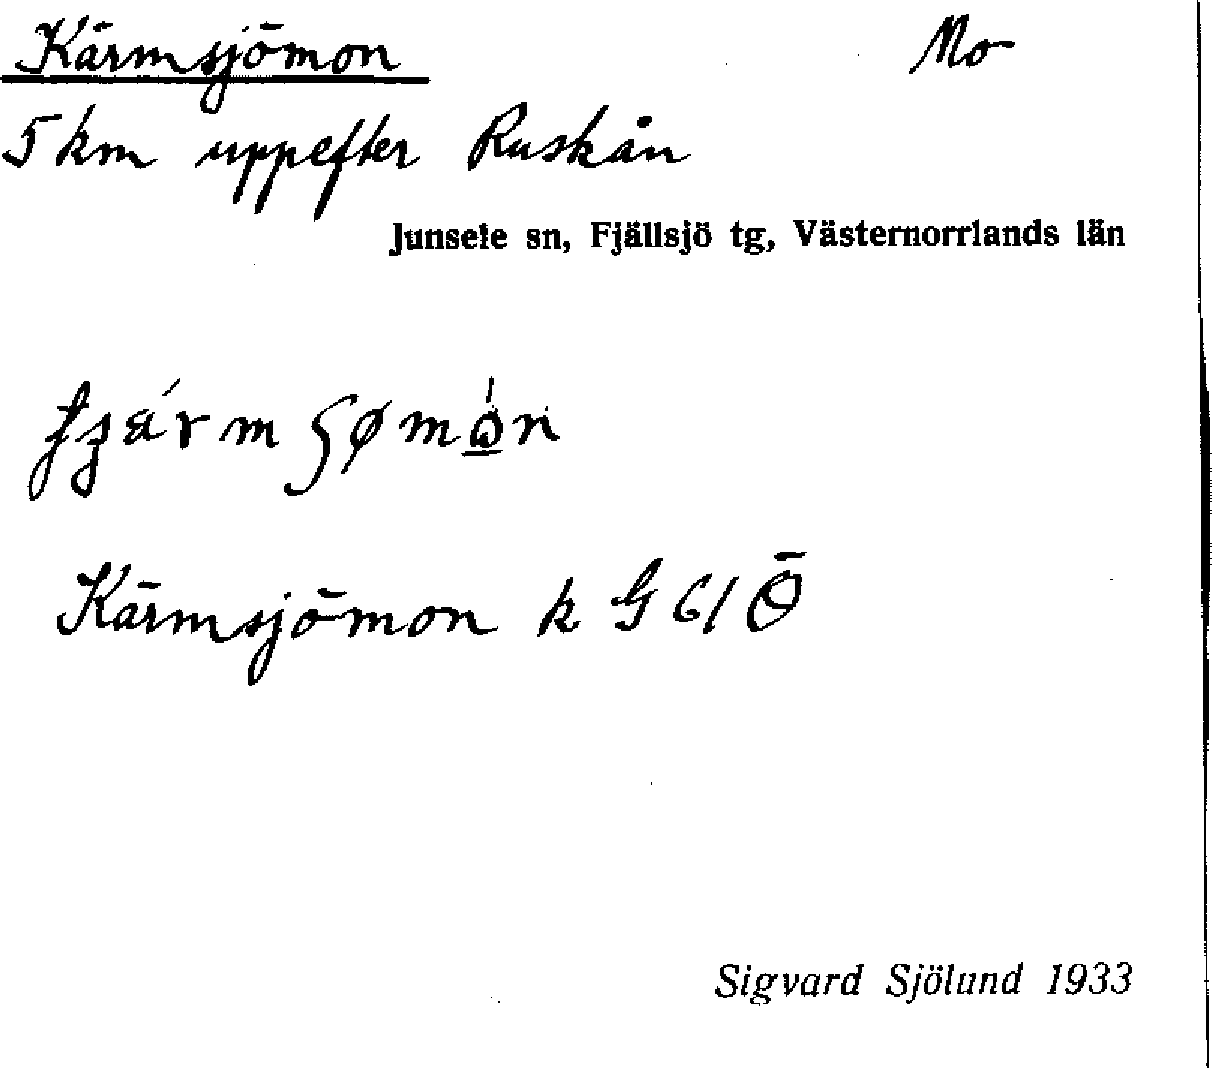 Kärmsjömon Mo
5 km uppefter Ruskån
Junsele sn, Fjällsjö tg, Västernorrlands län
Kärmsjömon k G 61 Ö
Sigvard Sjölund 1933